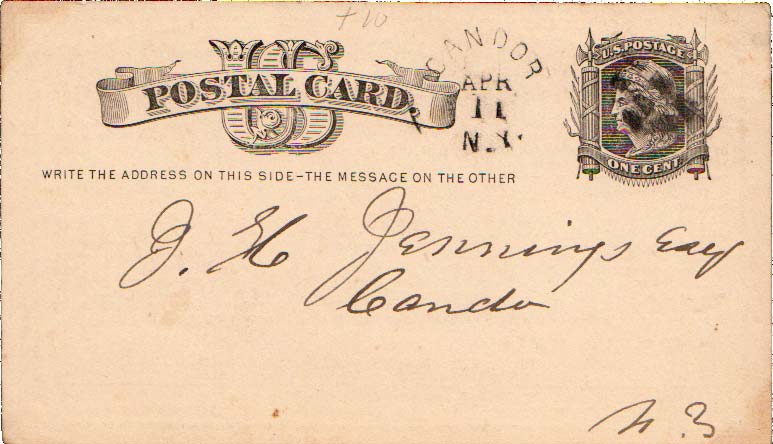 +10
CANDOR
APR
11
N.Y.
U.S. POSTAGE
ONE CENT
US
POSTAL CARD
WRITE THE ADDRESS ON THIS SIDE–THE MESSAGE ON THE OTHER
J. H. Jennings Esq
Candor
N. Y.